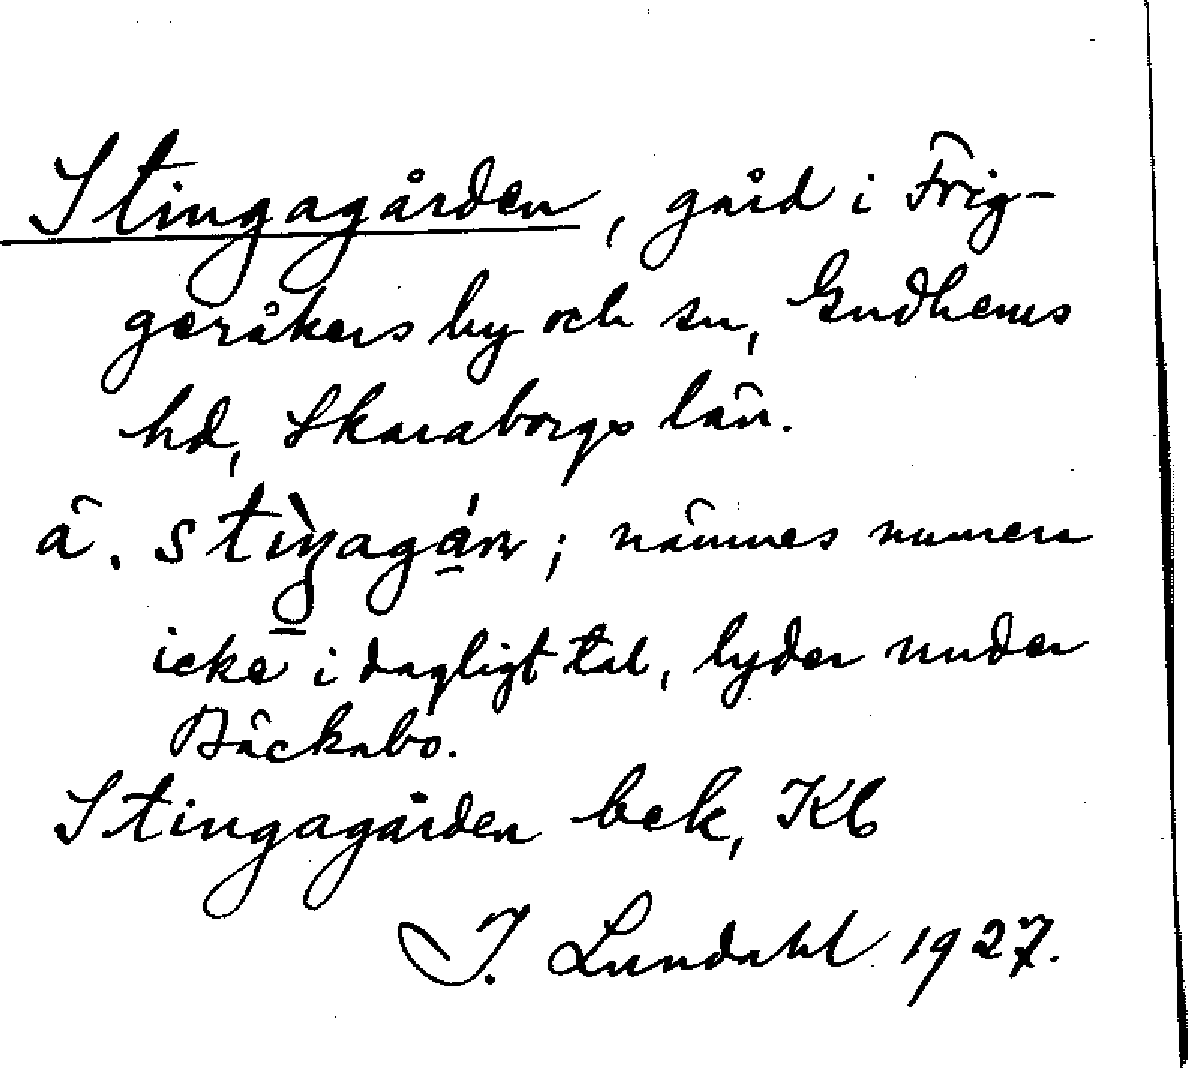 Stingagården, gård i Frig-
geråkers by och sn, Gudhems
hd, Skaraborgs län.
ä. stìŋagá̠ɳ; nämnes numera
icke i dagligt tal, lyder under
Bäckabo.
Stingagården bek, Kb
I. Lundahl 1927.